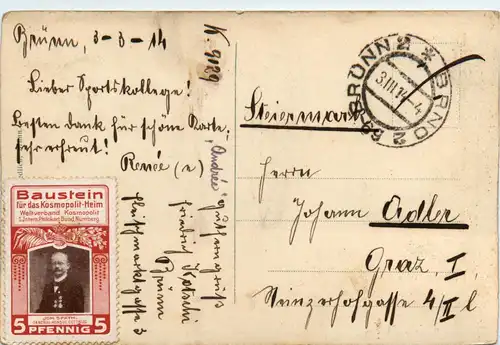 Brünn, 3-3-14
K. 9029
Lieber Sportskollege!
Besten dank für schöne Karte,
sehr erfreut!
Renée (e)
„Andrée"
gutfemgruß
friedrich
Brünn
fleischmarktgasse 3
BRÜNN 2 * BRNO 2
3.III.14
4
Steiermark
Herrn
Johann Adler
Graz, I
4/II l
Baustein
für das Kosmopolit-Heim
Weltverband Kosmopolit
5 PFENNIG 5